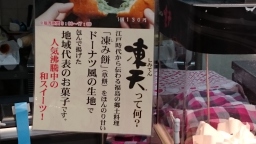 しみてん
凍天って何?
江戸時代から伝わる福島の郷土料理
「凍み餅」(草餅)をほんのり甘い
ドーナツ風の生地で
包んで揚げた
地域代表のお菓子です。
人気沸騰中の
和スイーツ!